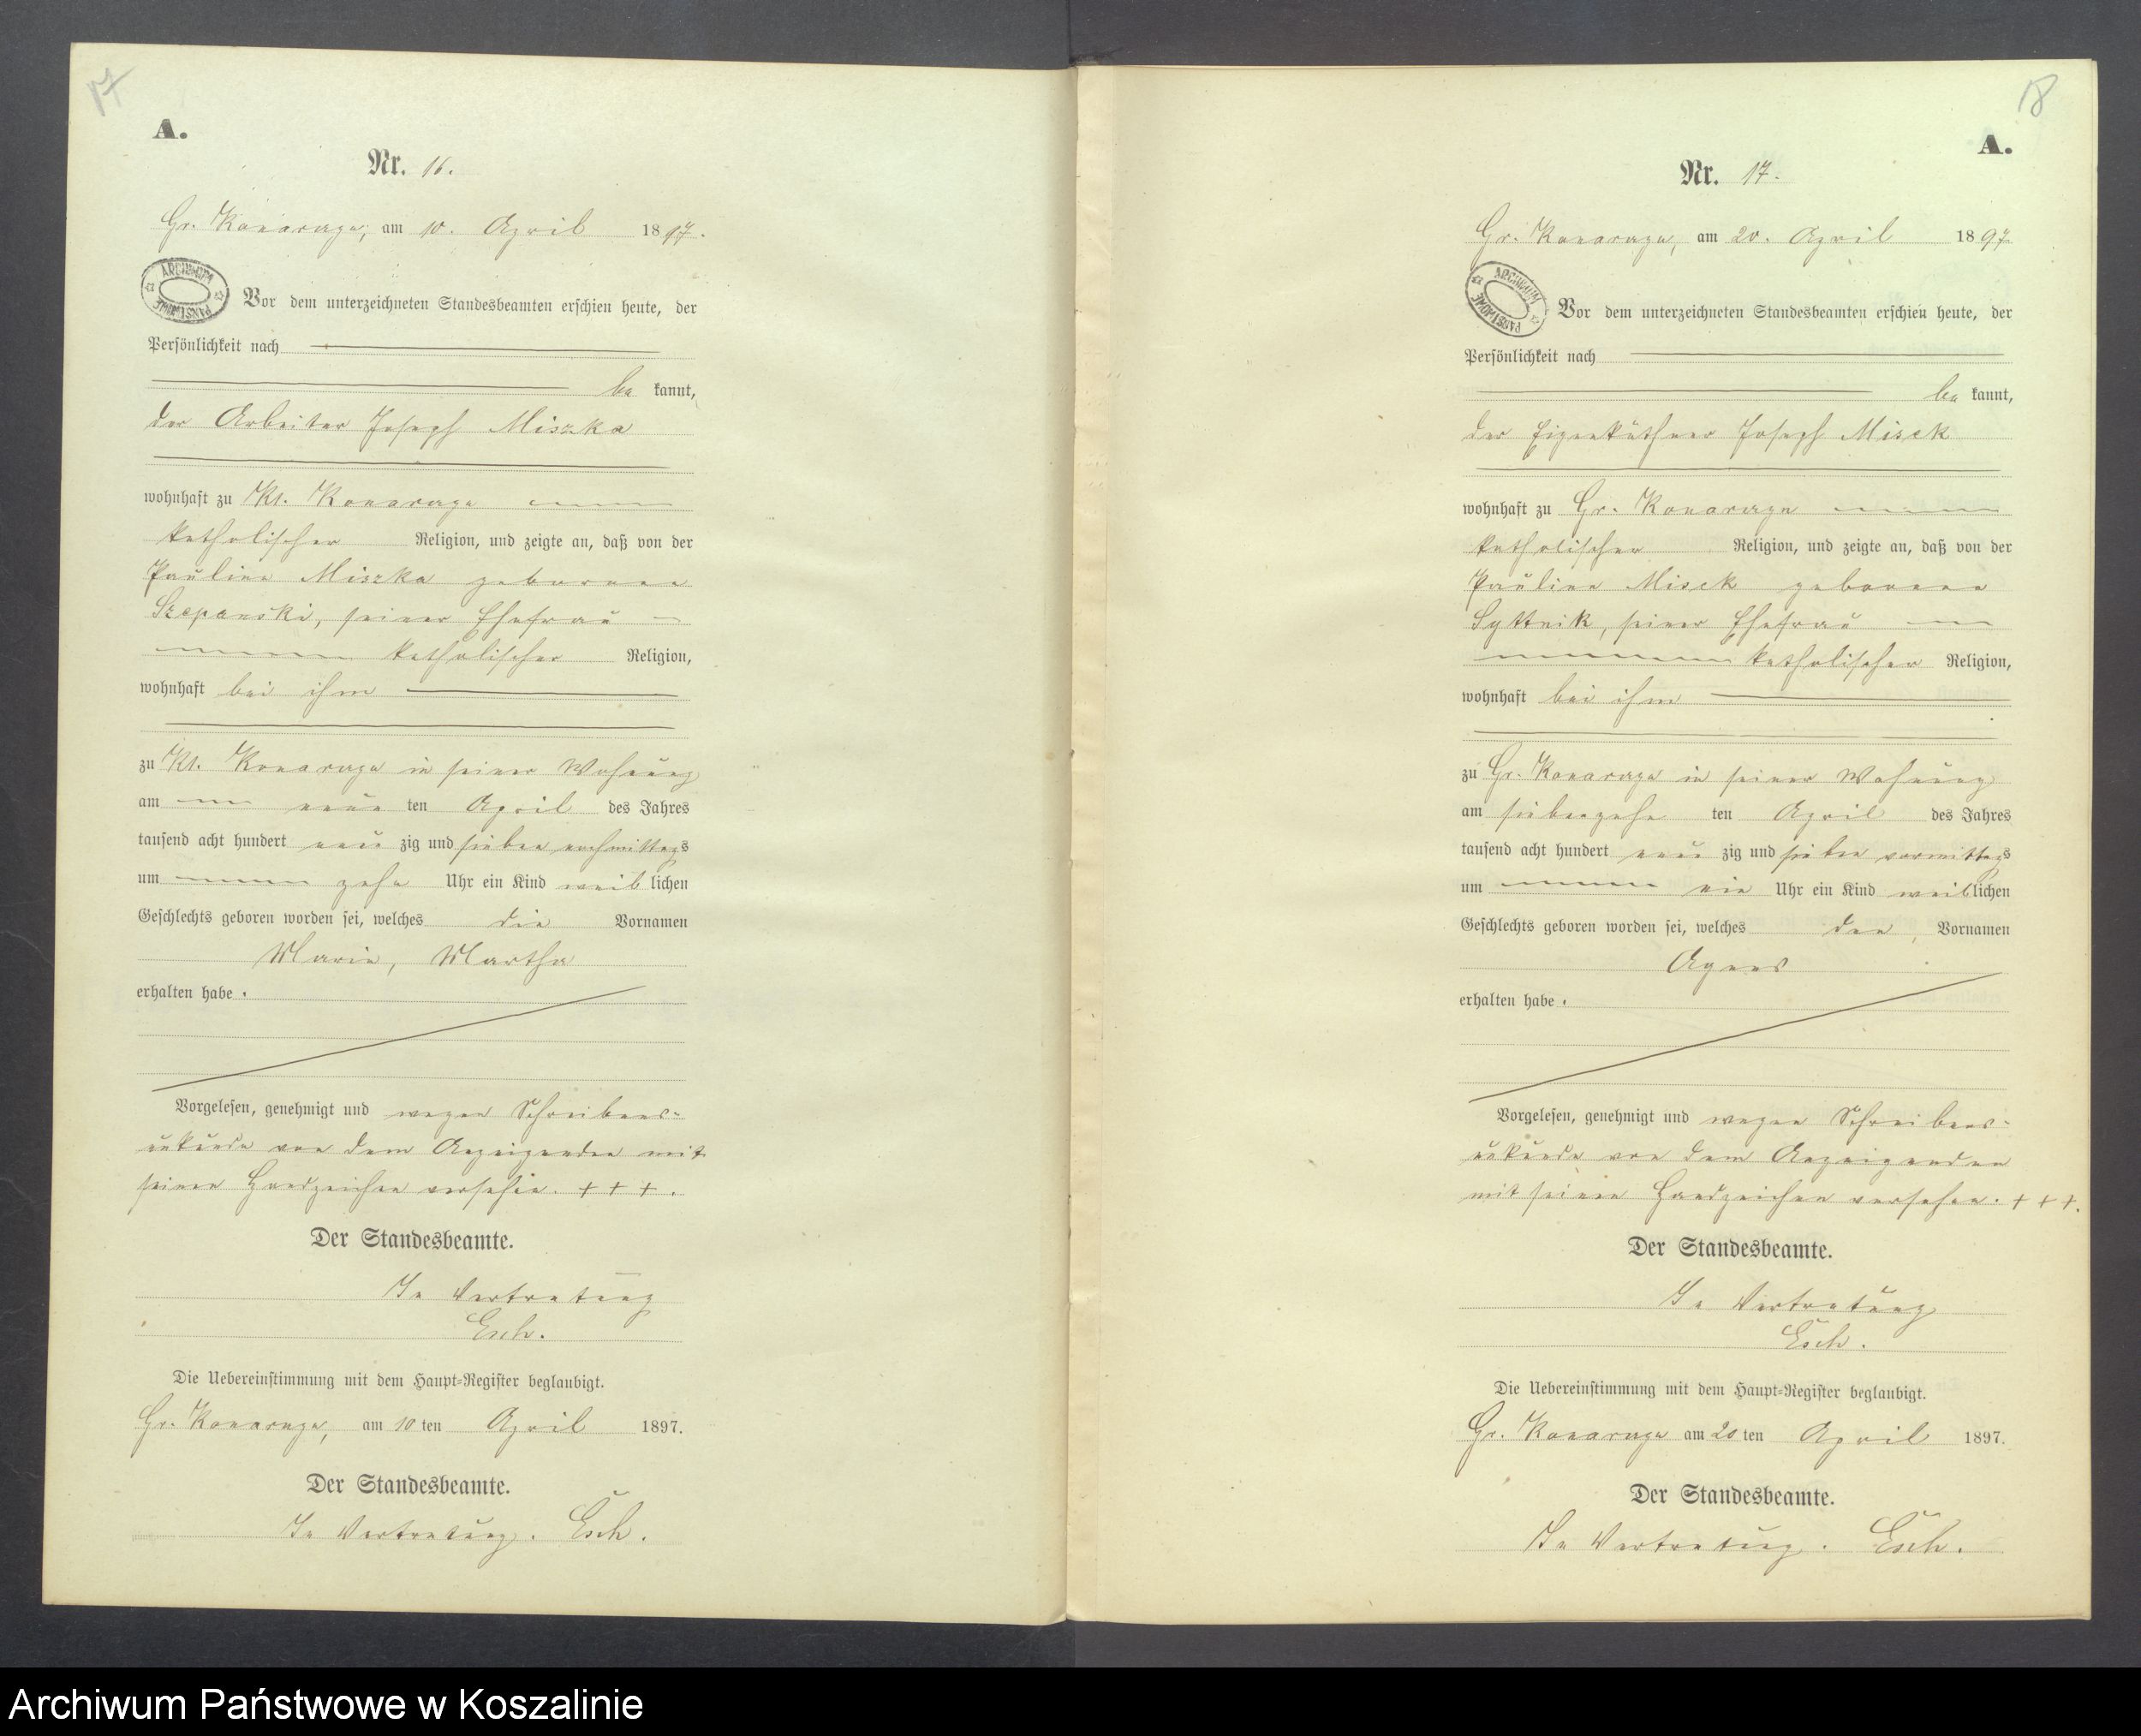 17
A.
Nr. 16.
Gr. Konarzyn, am 10. April 1897.
ARCHIWUM
PAŃSTWOWE
Vor dem unterzeichneten Standesbeamten erschien heute, der
Persönlichkeit nach
be kannt,
der Arbeiter Joseph Miszka
wohnhaft zu Kl. Konarzyn
katholischer Religion, und zeigte an, daß von der
Pauline Miszka geborene
Szepanski, seiner Ehefrau
katholischer Religion,
wohnhaft bei ihm
zu Kl. Konarzyn in seiner Wohnung
am neun ten April des Jahres
tausend acht hundert neun zig und sieben nachmittags
um zehn Uhr ein Kind weib lichen
Geschlechts geboren worden sei, welches die Vornamen
Marie, Martha
erhalten habe.
Vorgelesen, genehmigt und wegen Schreibens-
unkunde von dem Anzeigenden mit
seinen Handzeichen versehen. + + + .
Der Standesbeamte.
In Vertretung
Esch.
Die Uebereinstimmung mit dem Haupt-Register beglaubigt.
Gr. Konarzyn, am 10 ten April 1897.
Der Standesbeamte.
In Vertretung. Esch.
18
A.
Nr. 17.
Gr. Konarzyn, am 20. April 1897
ARCHIWUM
PAŃSTWOWE
Vor dem unterzeichneten Standesbeamten erschien heute, der
Persönlichkeit nach
be kannt,
der Eigenkäthner Joseph Misck
wohnhaft zu Gr. Konarzyn
katholischer Religion, und zeigte an, daß von der
Pauline Misck geborene
Syttnik, seiner Ehefrau
katholischer Religion,
wohnhaft bei ihm
zu Gr. Konarzyn in seiner Wohnung
am siebenzehn ten April des Jahres
tausend acht hundert neun zig und sieben vormittags
um ein Uhr ein Kind weiblichen
Geschlechts geboren worden sei, welches den Vornamen
Agnes
erhalten habe.
Vorgelesen, genehmigt und wegen Schreibens-
unkunde von dem Anzeigenden
mit seinen Handzeichen versehen. + + +.
Der Standesbeamte.
In Vertretung
Esch.
Die Uebereinstimmung mit dem Haupt-Register beglaubigt.
Gr. Konarzyn am 20 ten April 1897.
Der Standesbeamte.
In Vertretung. Esch.
Archiwum Państwowe w Koszalinie